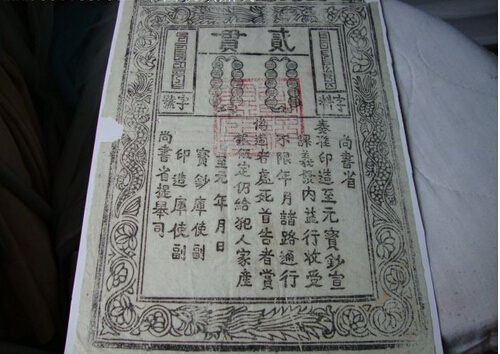 貳貫
字料
字號
尚書省
奏准印造至元寶鈔宣
課差役內並行收受
不限年月諸路通行
偽造者處死首告者賞
銀伍定仍給犯人家產
至元 年 月 日
寶鈔庫使副
印造庫使副
尚書省提舉司